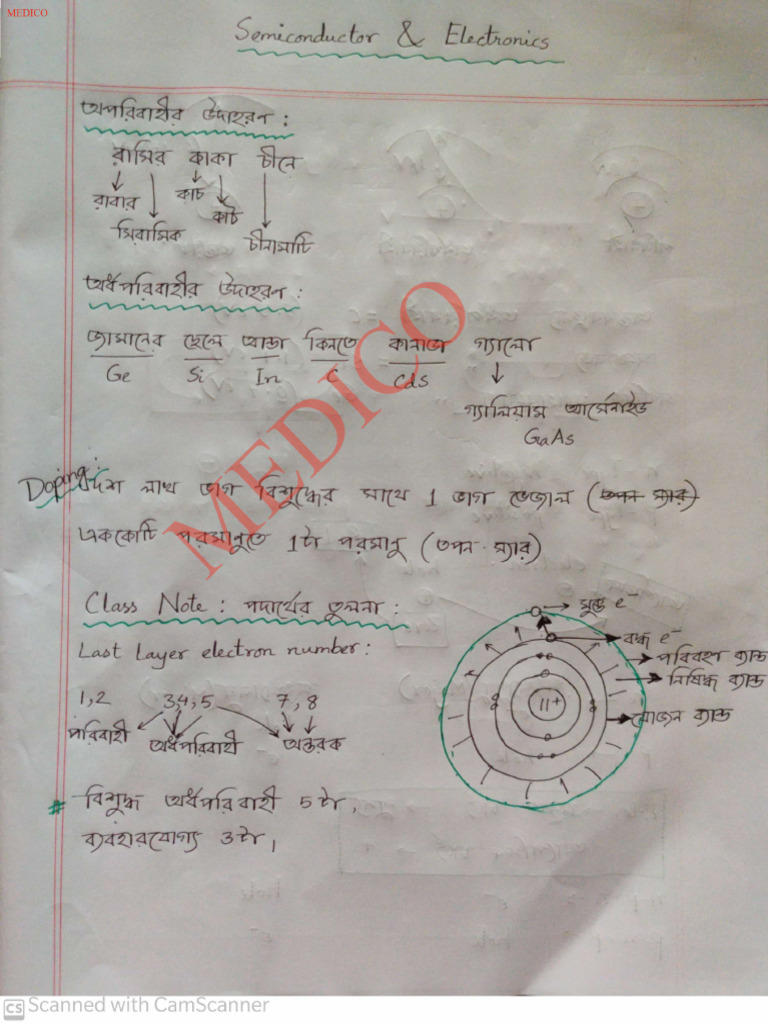 MEDICO
Semiconductor & Electronics
অপরিবাহীর উদাহরণ :
রাসির কাকা চীনে
রাবার কাচ কাঠ
সিরামিক চীনামাটি
অর্ধপরিবাহীর উদাহরণ :
জার্মানের ছেলে আন্ডা কিনতে কানাডা গ্যালো
Ge Si In C Cds
গ্যালিয়াম আর্সেনাইড
GaAs
MEDICO
Doping: দশ লাখ ভাগ বিশুদ্ধের সাথে 1 ভাগ ভেজাল (তপন স্যার)
এককোটি পরমানুতে 1টা পরমানু (তপন স্যার)
Class Note : পদার্থের তুলনা :
মুক্ত e⁻
বদ্ধ e⁻
Last Layer electron number :
পরিবহণ ব্যান্ড
নিষিদ্ধ ব্যান্ড
1,2 3,4,5 7,8
11+
যোজন ব্যান্ড
পরিবাহী অর্ধপরিবাহী অন্তরক
# বিশুদ্ধ অর্ধপরিবাহী 5টা,
ব্যবহারযোগ্য 3টা।
CS Scanned with CamScanner